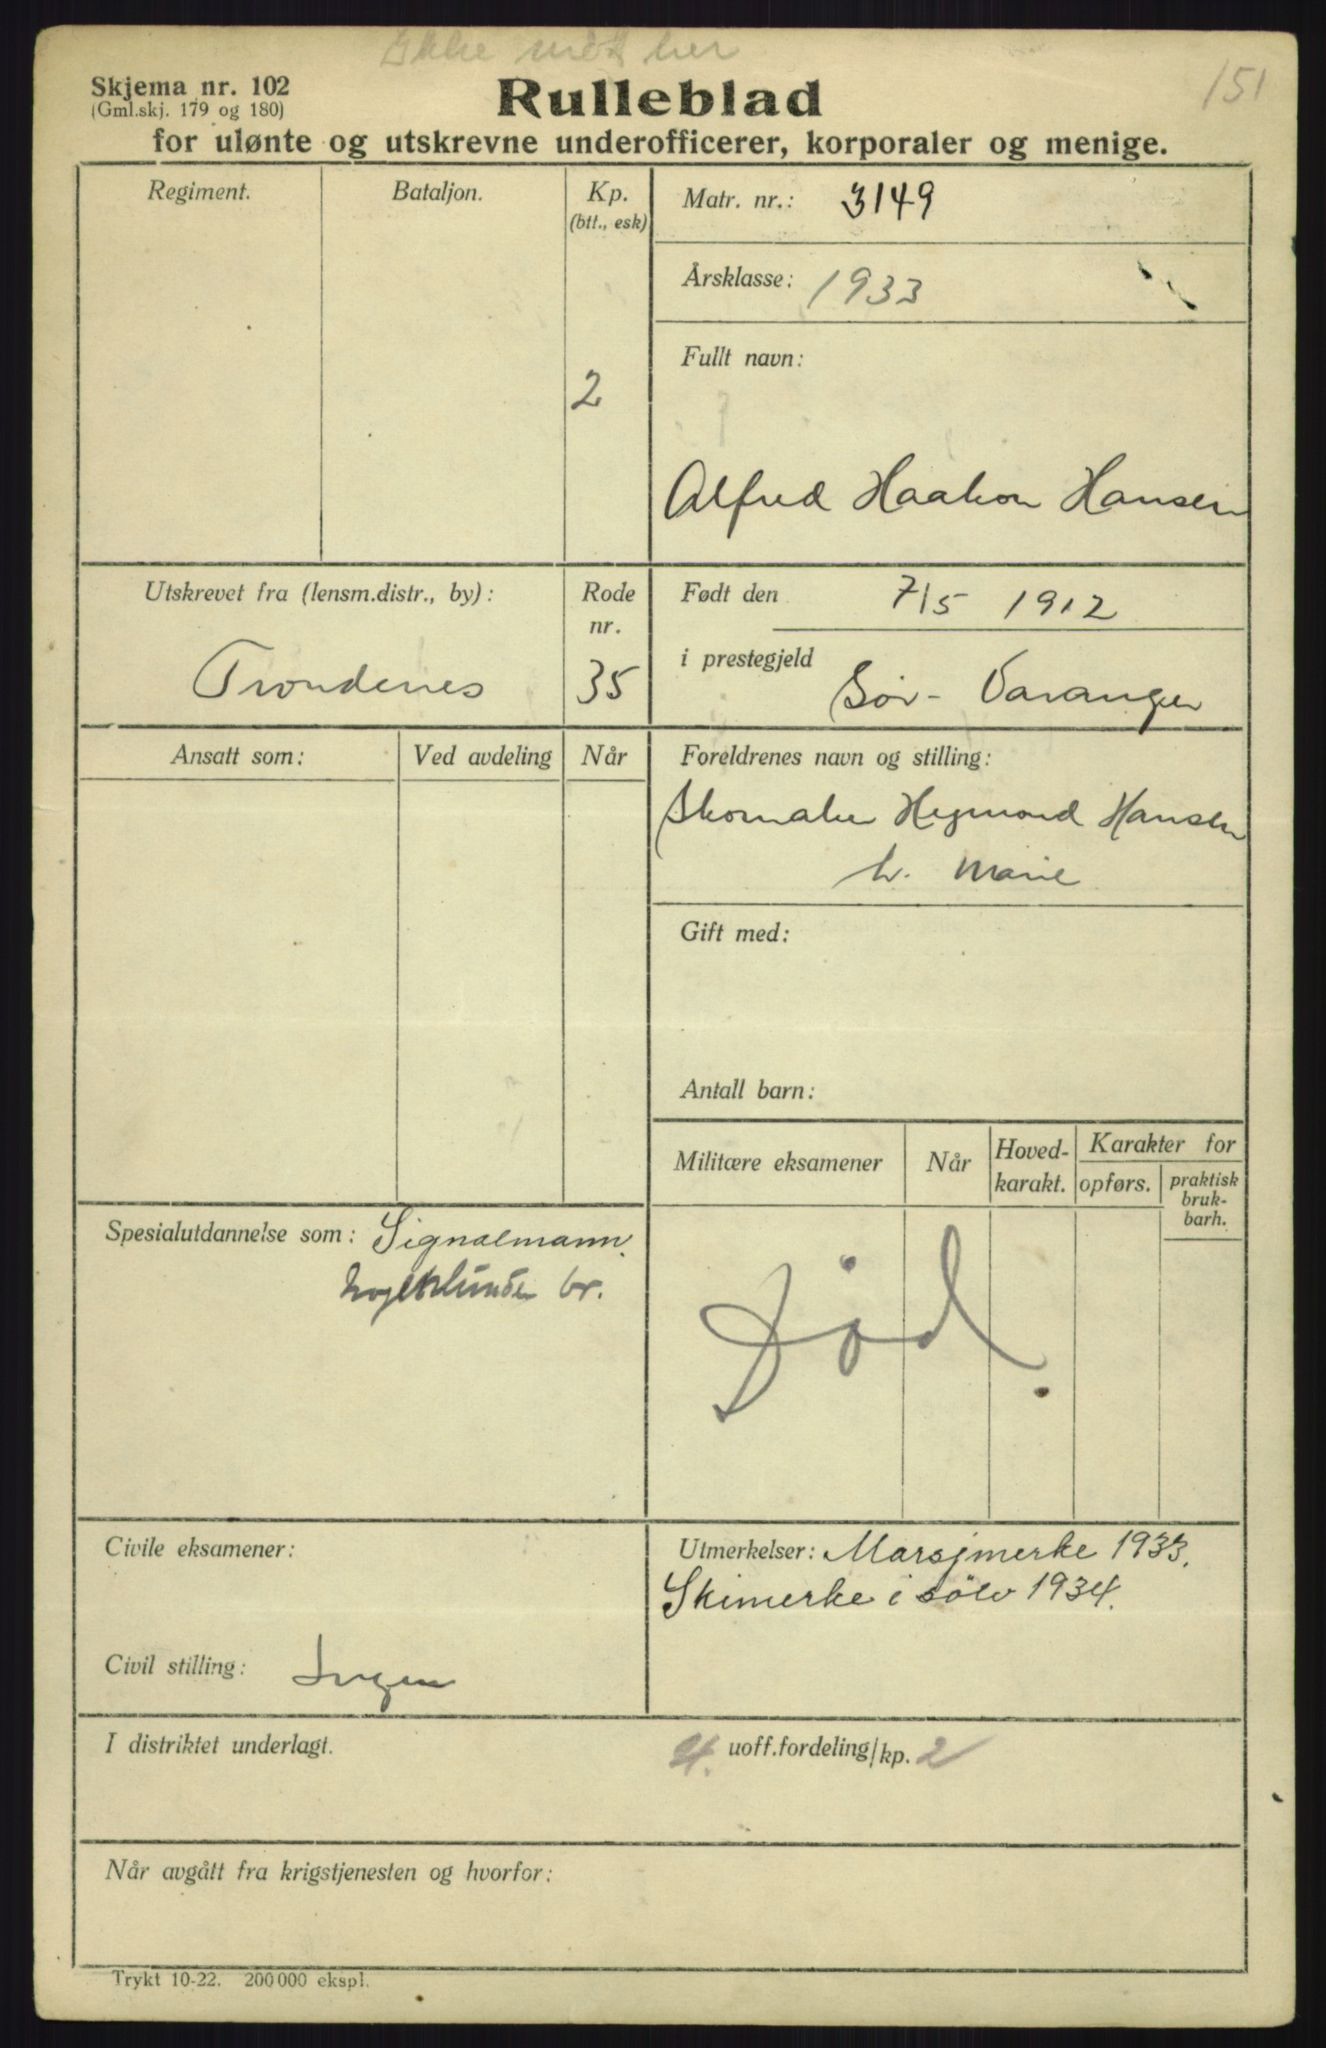 Ikke møtt her
151
Skjema nr. 102
(Gml.skj. 179 og 180)
Rulleblad
for ulønte og utskrevne underofficerer, korporaler og menige.
Regiment.
Bataljon.
Kp.
(btt., esk)
2
Matr. nr.: 3149
Årsklasse: 1933
Fullt navn:
Alfred Haakon Hansen
Utskrevet fra (lensm.distr., by):
Trondenes
Rode
nr.
35
Født den 7/5 1912
i prestegjeld
Sør-Varanger
Ansatt som:
Ved avdeling
Når
Foreldrenes navn og stilling:
Skomaker Hegmond Hansen
h. Marie
Gift med:
Antall barn:
Militære eksamener
Når
Hoved-
karakt.
Karakter for
opførs.
praktisk
bruk-
barh.
Død.
Spesialutdannelse som: Signalmann.
br.
Civile eksamener:
Civil stilling: Ingen
Utmerkelser: Marsjmerke 1933.
Skimerke i sølv 1934.
I distriktet underlagt.
4. uoff.fordeling/kp. 2
Når avgått fra krigstjenesten og hvorfor:
Trykt 10-22. 200 000 ekspl.